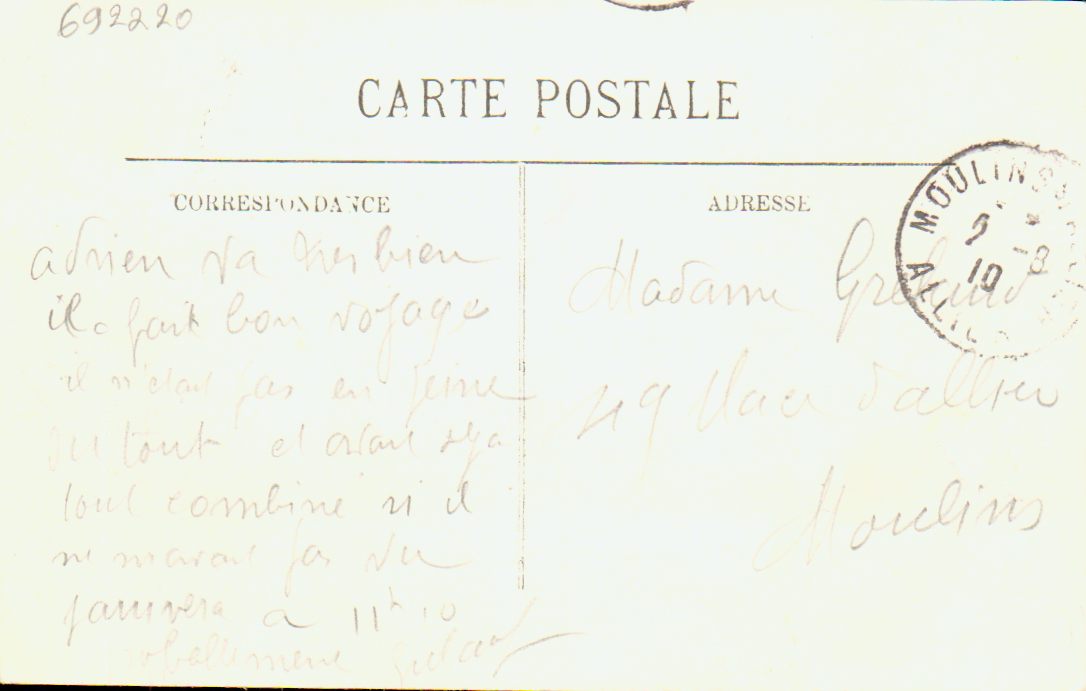 692220
CARTE POSTALE
CORRESPONDANCE
ADRESSE
MOULINS
2 -8
10
ALLIER
adrien va tres bien
il a fait bon voyage
il n'etait pas en peine
du tout et avait deja
tout combiné si il
ne m'avait pas vu
j'arrivera a 11h 10
Madame
49 Place d'allier
Moulins